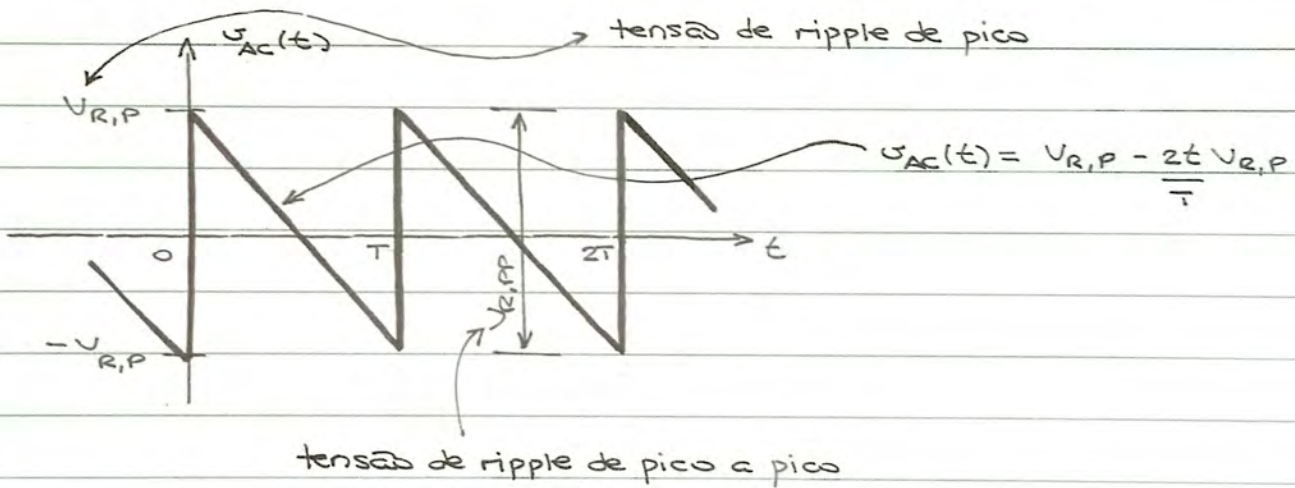 v_AC(t)
tensão de ripple de pico
V_R,P
v_AC(t) = V_R,P - 2t/T V_R,P
0
T
2T
t
V_R,PP
-V_R,P
tensão de ripple de pico a pico